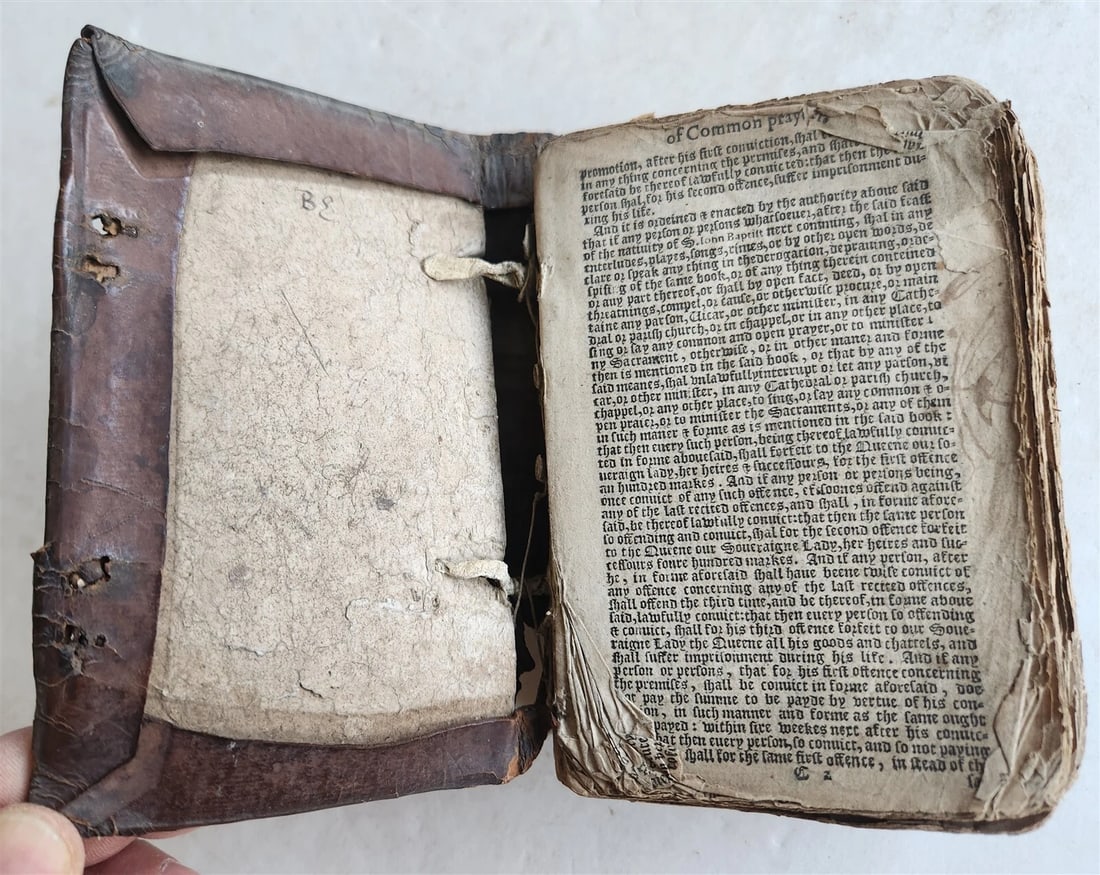 BE
of Common pray
promotion, after his first conviction, shal
in any thing concerning the premises, and shall
foresaid be thereof lawfully convicted: that then the
person shal, for his second offence, suffer imprisonment du-
ring his life.
And it is ordeined & enacted by the authority aboue said
that if any person or persons whatsoeuer, after the said feast
of the natiuity of S. Iohn Baptist next comming, shal in any
enterludes, playes, songs, rimes, or by other open words, de
clare or speak any thing in the derogation, deprauing, or de-
spising of the same book, or of any thing therein conteined
or any part thereof, or shall by open fact, deed, or by open
threatnings, compel, or cause, or otherwise procure, or main
taine any parson, Uicar, or other minister, in any Cathe-
dral or parish church, or in chappel, or in any other place, to
sing or say any common and open prayer, or to minister
ny Sacrament, otherwise, or in other maner and forme
then is mentioned in the said book, or that by any of the
said meanes, shal vnlawfully interrupt or let any parson, vi
car, or other minister, in any Cathedral or parish church,
chappel, or any other place, to sing, or say any common & o-
pen praier, or to minister the Sacraments, or any of them
in such maner & forme as is mentioned in the said book:
that then euery such person, being thereof lawfully conuic-
ted in forme abouesaid, shall forfeit to the Queene our so-
ueraign lady, her heires & successours, for the first offence
an hundred markes. And if any person or persons being,
once conuict of any such offence, eftsoones offend against
any of the last recited offences, and shall, in forme afore-
said, be thereof lawfully conuict: that then the same person
so offending and conuict, shal for the second offence forfeit
to the Queene our Soueraigne Lady, her heires and suc-
cessours foure hundred markes. And if any person, after
he, in forme aforesaid shall haue beene twise conuict of
any offence concerning any of the last recited offences,
shall offend the third time, and be thereof, in forme aboue
said, lawfully conuict: that then euery person so offending
& conuict, shall for his third offence forfeit to our Soue-
raigne Lady the Queene all his goods and chattels, and
shall suffer imprisonment during his life. And if any
person or persons, that for his first offence concerning
the premises, shall be conuict in forme aforesaid, doe
pay the summe to be payde by vertue of his con-
on, in such manner and forme as the same ought
payed: within sixe weekes next after his conuic-
hat then euery person, so conuict, and so not paying
shall for the same first offence, in stead of th
C 2